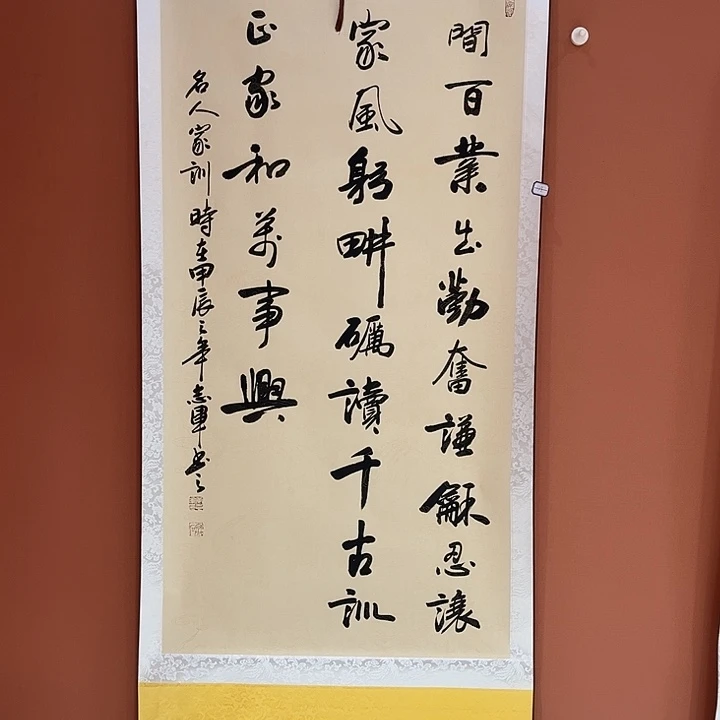 間百業出勤奮謙龢忍讓
家風躬畊礪讀千古訓
正家和萬事興
名人家訓時在甲辰之年志軍書之